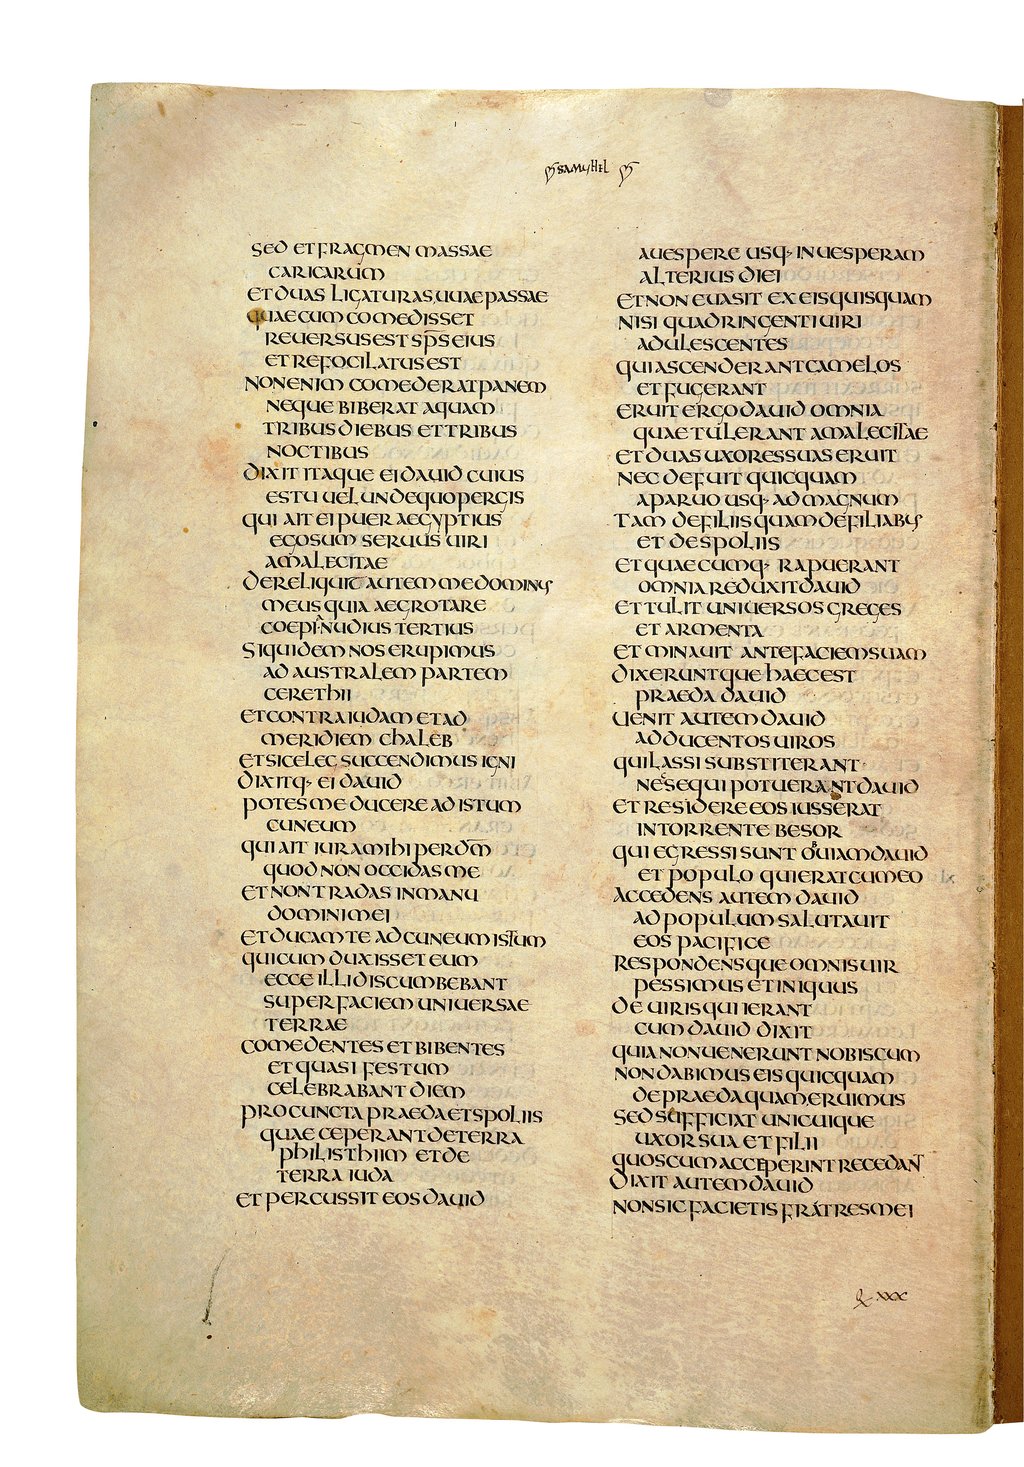 SAMUHEL
SED ET FRAGMEN MASSAE
CARICARUM
ET DUAS LIGATURAS UUAE PASSAE
QUAE CUM COMEDISSET
REUERSUS EST SP̅S EIUS
ET REFOCILATUS EST
NON ENIM COMEDERAT PANEM
NEQUE BIBERAT AQUAM
TRIBUS DIEBUS ET TRIBUS
NOCTIBUS
DIXIT ITAQUE EI DAUID CUIUS
ES TU UEL UNDE QUO PERGIS
QUI AIT EI PUER AEGYPTIUS
EGO SUM SERUUS UIRI
AMALECITAE
DERELIQUIT AUTEM ME DOMINUS
MEUS QUIA AEGROTARE
COEPI NUDIUS TERTIUS
SIQUIDEM NOS ERUPIMUS
AD AUSTRALEM PARTEM
CERETHII
ET CONTRA IUDAM ET AD
MERIDIEM CHALEB
ET SICELEG SUCCENDIMUS IGNI
DIXITQ· EI DAUID
POTES ME DUCERE AD ISTUM
CUNEUM
QUI AIT IURA MIHI PER DM̅
QUOD NON OCCIDAS ME
ET NON TRADAS IN MANU
DOMINI MEI
ET DUCAM TE AD CUNEUM ISTUM
QUI CUM DUXISSET EUM
ECCE ILLI DISCUMBEBANT
SUPER FACIEM UNIUERSAE
TERRAE
COMEDENTES ET BIBENTES
ET QUASI FESTUM
CELEBRABANT DIEM
PRO CUNCTA PRAEDA ET SPOLIIS
QUAE CEPERANT DE TERRA
PHILISTHIIM ET DE
TERRA IUDA
ET PERCUSSIT EOS DAUID
A UESPERE USQ· IN UESPERAM
ALTERIUS DIEI
ET NON EUASIT EX EIS QUISQUAM
NISI QUADRINGENTI UIRI
ADULESCENTES
QUI ASCENDERANT CAMELOS
ET FUGERANT
ERUIT ERGO DAUID OMNIA
QUAE TULERANT AMALECITAE
ET DUAS UXORES SUAS ERUIT
NEC DEFUIT QUICQUAM
A PARUO USQ· AD MAGNUM
TAM DE FILIIS QUAM DE FILIABUS
ET DE SPOLIIS
ET QUAECUMQ· RAPUERANT
OMNIA REDUXIT DAUID
ET TULIT UNIUERSOS GREGES
ET ARMENTA
ET MINAUIT ANTE FACIEM SUAM
DIXERUNTQUE HAEC EST
PRAEDA DAUID
UENIT AUTEM DAUID
AD DUCENTOS UIROS
QUI LASSI SUBSTITERANT
NE SEQUI POTUERANT DAUID
ET RESIDERE EOS IUSSERAT
IN TORRENTE BESOR
QUI EGRESSI SUNT OBUIAM DAUID
ET POPULO QUI ERAT CUM EO
ACCEDENS AUTEM DAUID
AD POPULUM SALUTAUIT
EOS PACIFICE
RESPONDENSQUE OMNIS UIR
PESSIMUS ET INIQUUS
DE UIRIS QUI IERANT
CUM DAUID DIXIT
QUIA NON UENERUNT NOBISCUM
NON DABIMUS EIS QUICQUAM
DE PRAEDA QUAM ERUIMUS
SED SUFFICIAT UNICUIQUE
UXOR SUA ET FILII
QUOS CUM ACCEPERINT RECEDANT
DIXIT AUTEM DAUID
NON SIC FACIETIS FRATRES MEI
XXX